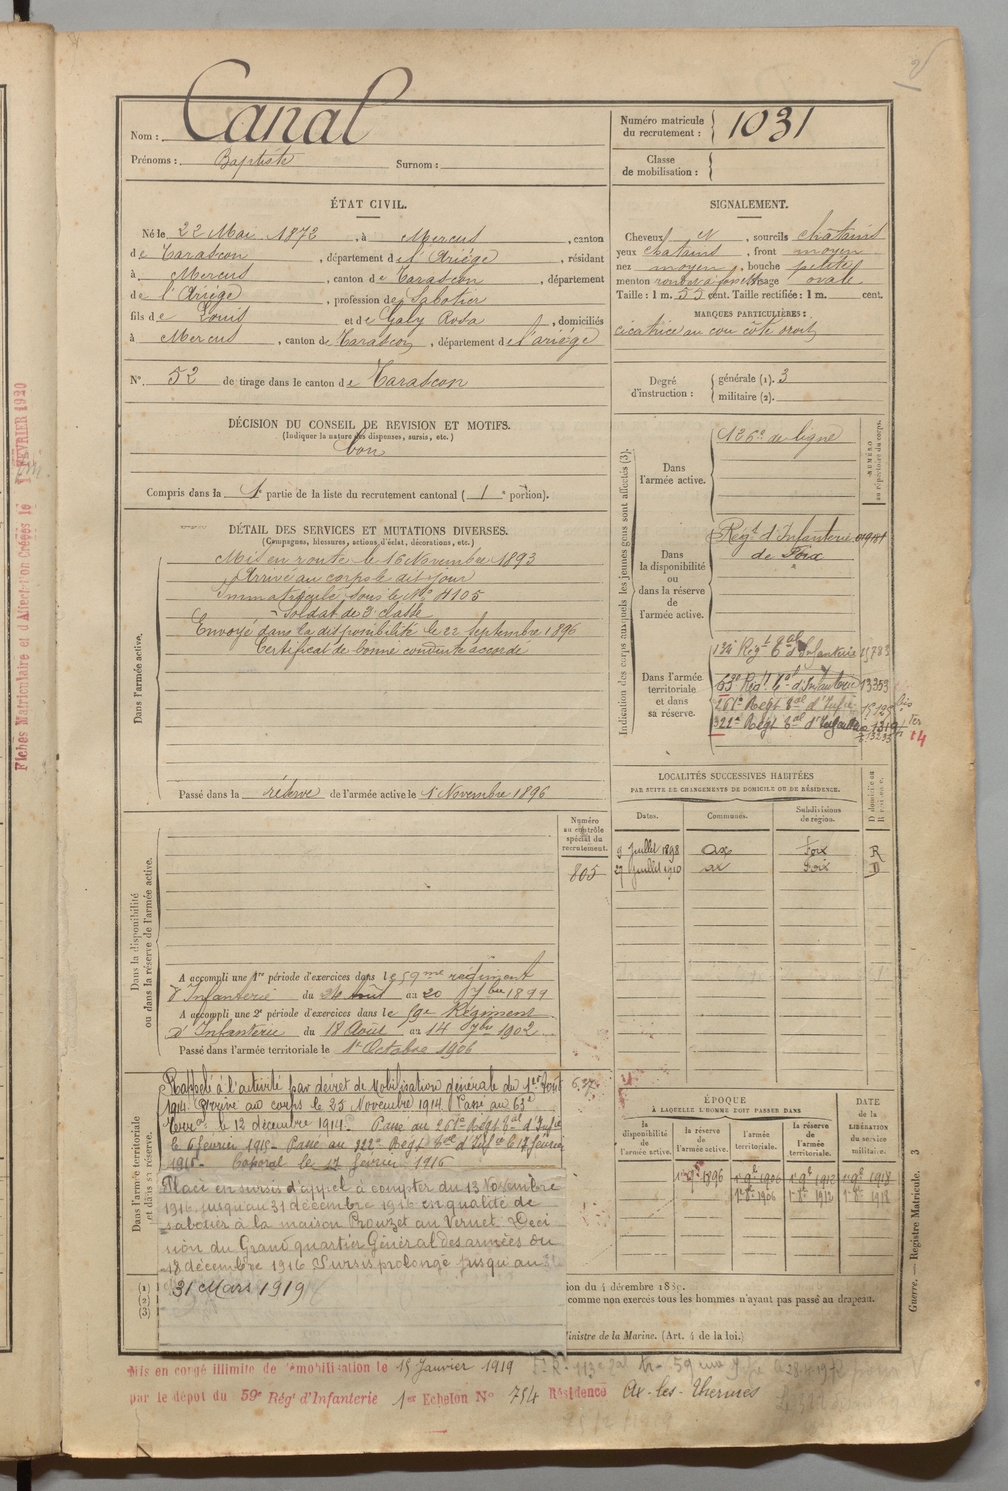 Nom : Canal
Prénoms : Baptiste Surnom :
Numéro matricule du recrutement : 1031
Classe de mobilisation :
ÉTAT CIVIL.
Né le 22 Mai 1872, à Mercus, canton
de Tarascon, département de l'Ariége, résidant
à Mercus, canton de Tarascon, département
de l'Ariége, profession de Sabotier
fils de Louis et de Galy Rosa, domiciliés
à Mercus, canton de Tarascon, département de l'ariége
N° 52 de tirage dans le canton de Tarascon
SIGNALEMENT.
Cheveux N, sourcils chatains
yeux chatains, front moyen
nez moyen, bouche petite
menton rond à fossette visage ovale
Taille : 1 m. 55 cent. Taille rectifiée : 1 m. cent.
MARQUES PARTICULIÈRES :
cicatrice au cou côté droit
Degré d'instruction : générale (1). 3
militaire (2).
DÉCISION DU CONSEIL DE REVISION ET MOTIFS.
(Indiquer la nature des dispenses, sursis, etc.)
bon
Compris dans la 1e partie de la liste du recrutement cantonal (1e portion).
DÉTAIL DES SERVICES ET MUTATIONS DIVERSES.
(Campagnes, blessures, actions d'éclat, décorations, etc.)
Dans l'armée active.
Mis en route le 16 Novembre 1893
Arrivé au corps le dit jour
Immatriculé sous le N° 4105
Soldat de 2e classe
Envoyé dans la disponibilité le 22 Septembre 1896
Certificat de bonne conduite accordé
Passé dans la réserve de l'armée active le 1r Novembre 1896
Indication des corps auxquels les jeunes gens sont affectés (3).
NUMÉRO au répertoire du corps.
Dans l'armée active.
126e de ligne
Dans la disponibilité ou dans la réserve de l'armée active.
Régt d'Infanterie
de Foix
Dans l'armée territoriale et dans sa réserve.
134 Régt tal d'Infanterie
63e Régt tal d'Infanterie 13353
261e Régt tal d'Infie
322e Régt tal d'Infanterie
LOCALITÉS SUCCESSIVES HABITÉES
PAR SUITE DE CHANGEMENTS DE DOMICILE OU DE RÉSIDENCE.
Dates. Communes. Subdivisions de région. D domicile ou R résidence.
9 Juillet 1898 Ax Foix R
27 Juillet 1910 ax Foix D
Numéro au contrôle spécial du recrutement.
805
Dans la disponibilité ou dans la réserve de l'armée active.
A accompli une 1re période d'exercices dans le 59me régiment
d'Infanterie du 24 Août au 20 7bre 1899
A accompli une 2e période d'exercices dans le 59e Régiment
d'Infanterie du 18 Août au 14 7bre 1902
Passé dans l'armée territoriale le 1r Octobre 1906
Dans l'armée territoriale et dans sa réserve.
Rappelé à l'activité par décret de Mobilisation générale du 1er Août
1914. Arrivé au corps le 25 Novembre 1914. Passé au 63e
Terral le 12 décembre 1914. Passé au 261e Régt tal d'Infie
le 6 février 1915. Passé au 322e Régt tal d'Infie le 17 février
1915. Caporal le 17 février 1916
Placé en sursis d'appel à compter du 13 Novembre
1916 jusqu'au 31 décembre 1916 en qualité de
sabotier à la maison Prouzet au Vernet. Deci
sion du Grand quartier Général des armées du
18 décembre 1916 Sursis prolongé jusqu'au
31 Mars 1919
ÉPOQUE
À LAQUELLE L'HOMME DOIT PASSER DANS
la disponibilité de l'armée active.
la réserve de l'armée active.
l'armée territoriale.
la réserve de l'armée territoriale.
DATE de la LIBÉRATION du service militaire.
1r 9bre 1896 1r 9e 1906 1r 9e 1912 1r 9e 1918
1r 8e 1906 1r 8e 1912 1r 8e 1918
ion du 4 décembre 1830.
comme non exercés tous les hommes n'ayant pas passé au drapeau.
inistre de la Marine. (Art. 4 de la loi.)
Mis en congé illimité de démobilisation le 15 Janvier 1919
par le dépôt du 59e Rég' d'Infanterie 1er Echelon N° 754 Résidence Ax-les-Thermes
Guerre. — Registre Matricule. 3
Fiches Matriculaire et d'Affectation Créées le 1 FÉVRIER 1920